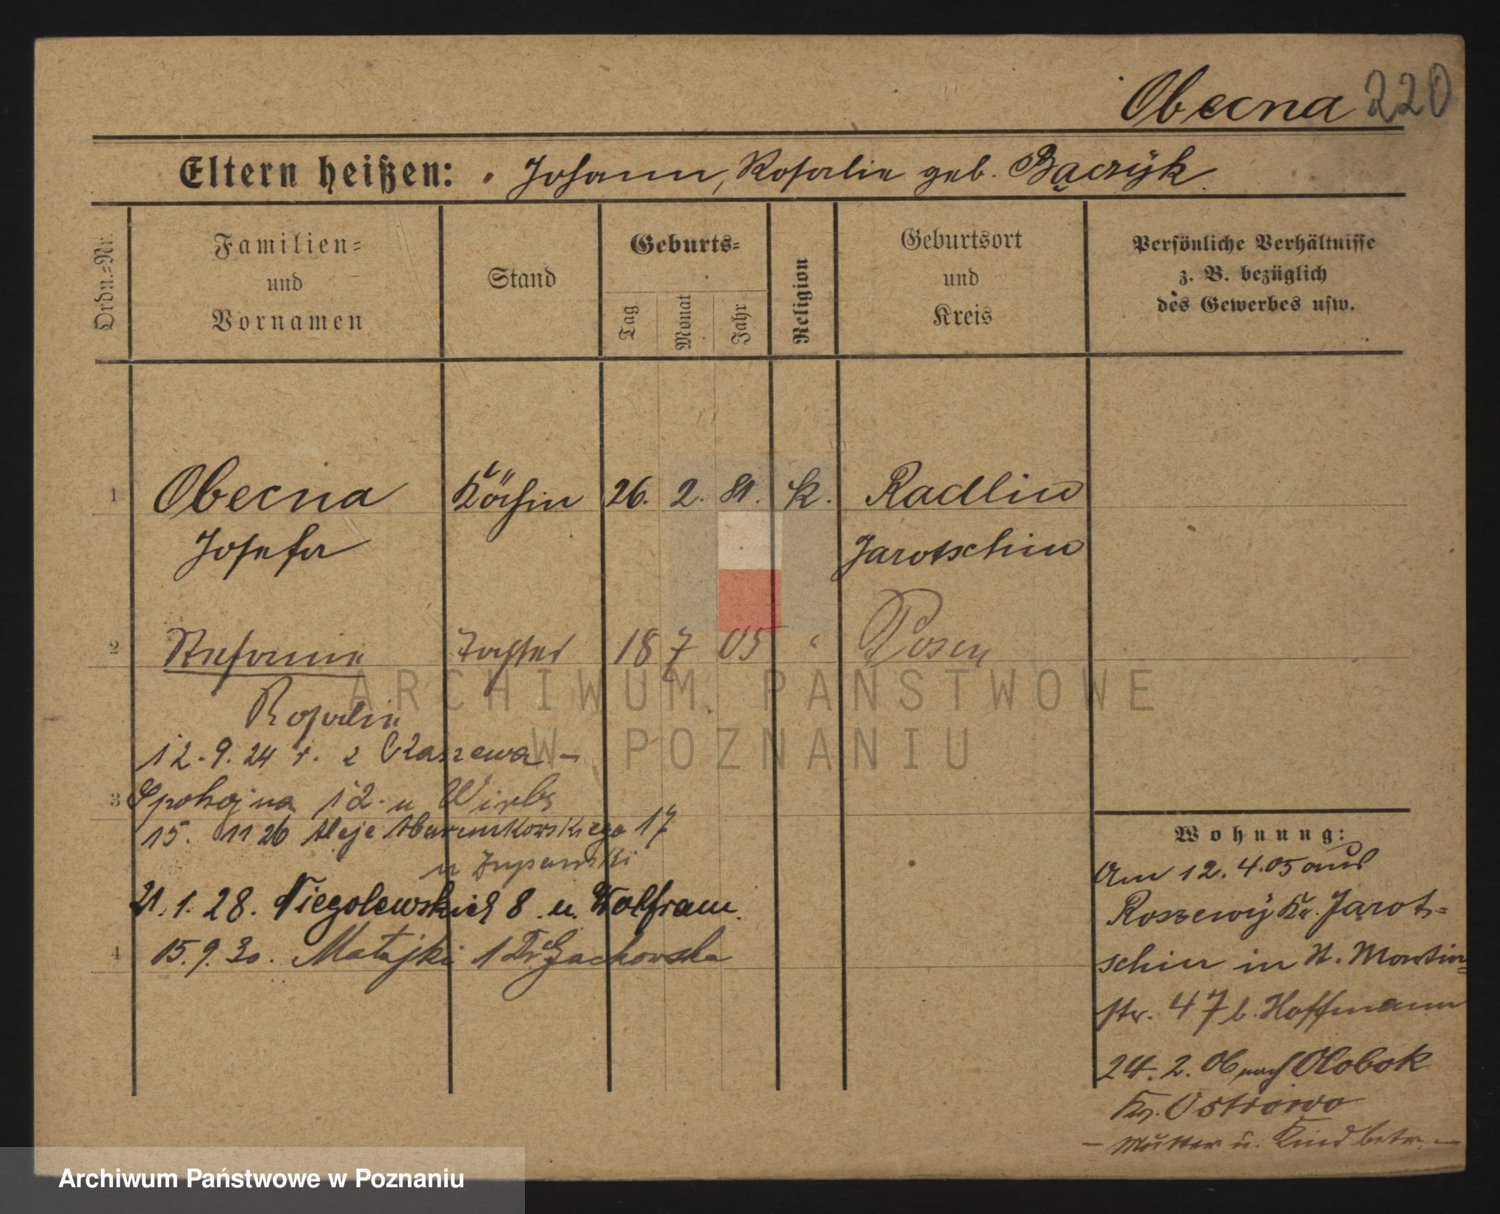 Obecna 220
Eltern heißen: Johann, Rosalie geb. Bączyk
Ordn.-Nr.
Familien-
und
Vornamen
Stand
Geburts-
Tag
Monat
Jahr
Religion
Geburtsort
und
Kreis
Persönliche Verhältnisse
z. B. bezüglich
des Gewerbes usw.
1 Obecna Köchin 26. 2. 81. k. Radlin
Josefa Jarotschin
2 Stefanie Tochter 18 7 05 " Posen
Rosalie
12.9.24 r. z Czaszewa -
3 Spokojna 12. u
15. 11 26 Aleje Marcinkowskiego 17
u Zupanski
21.1.28. Niegolewskich 8 u. Wolfram.
4 15.9.30. Matejki 1
Wohnung:
Am 12.4.05 aus
Roszewy Kr. Jarot-
schin in St. Martin-
str. 47 b. Hoffmann
24. 2. 06 nach Olobok
Kr. Ostrowo
- Mutter u. Kind betr. -
ARCHIWUM PAŃSTWOWE
W POZNANIU
Archiwum Państwowe w Poznaniu